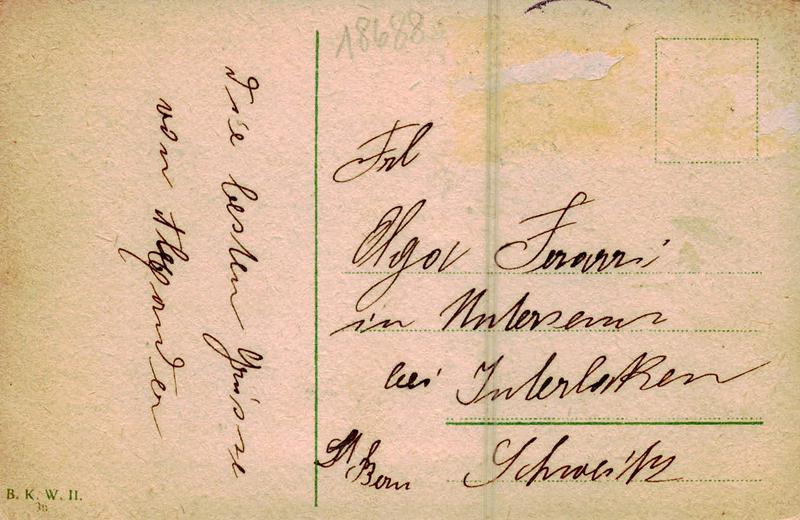 18688
Die besten Grüsse
von Alexander
Frl
Olga Ferarri
in Unterseen
bei Interlaken
Kt Bern Schweitz
B. K. W. II.